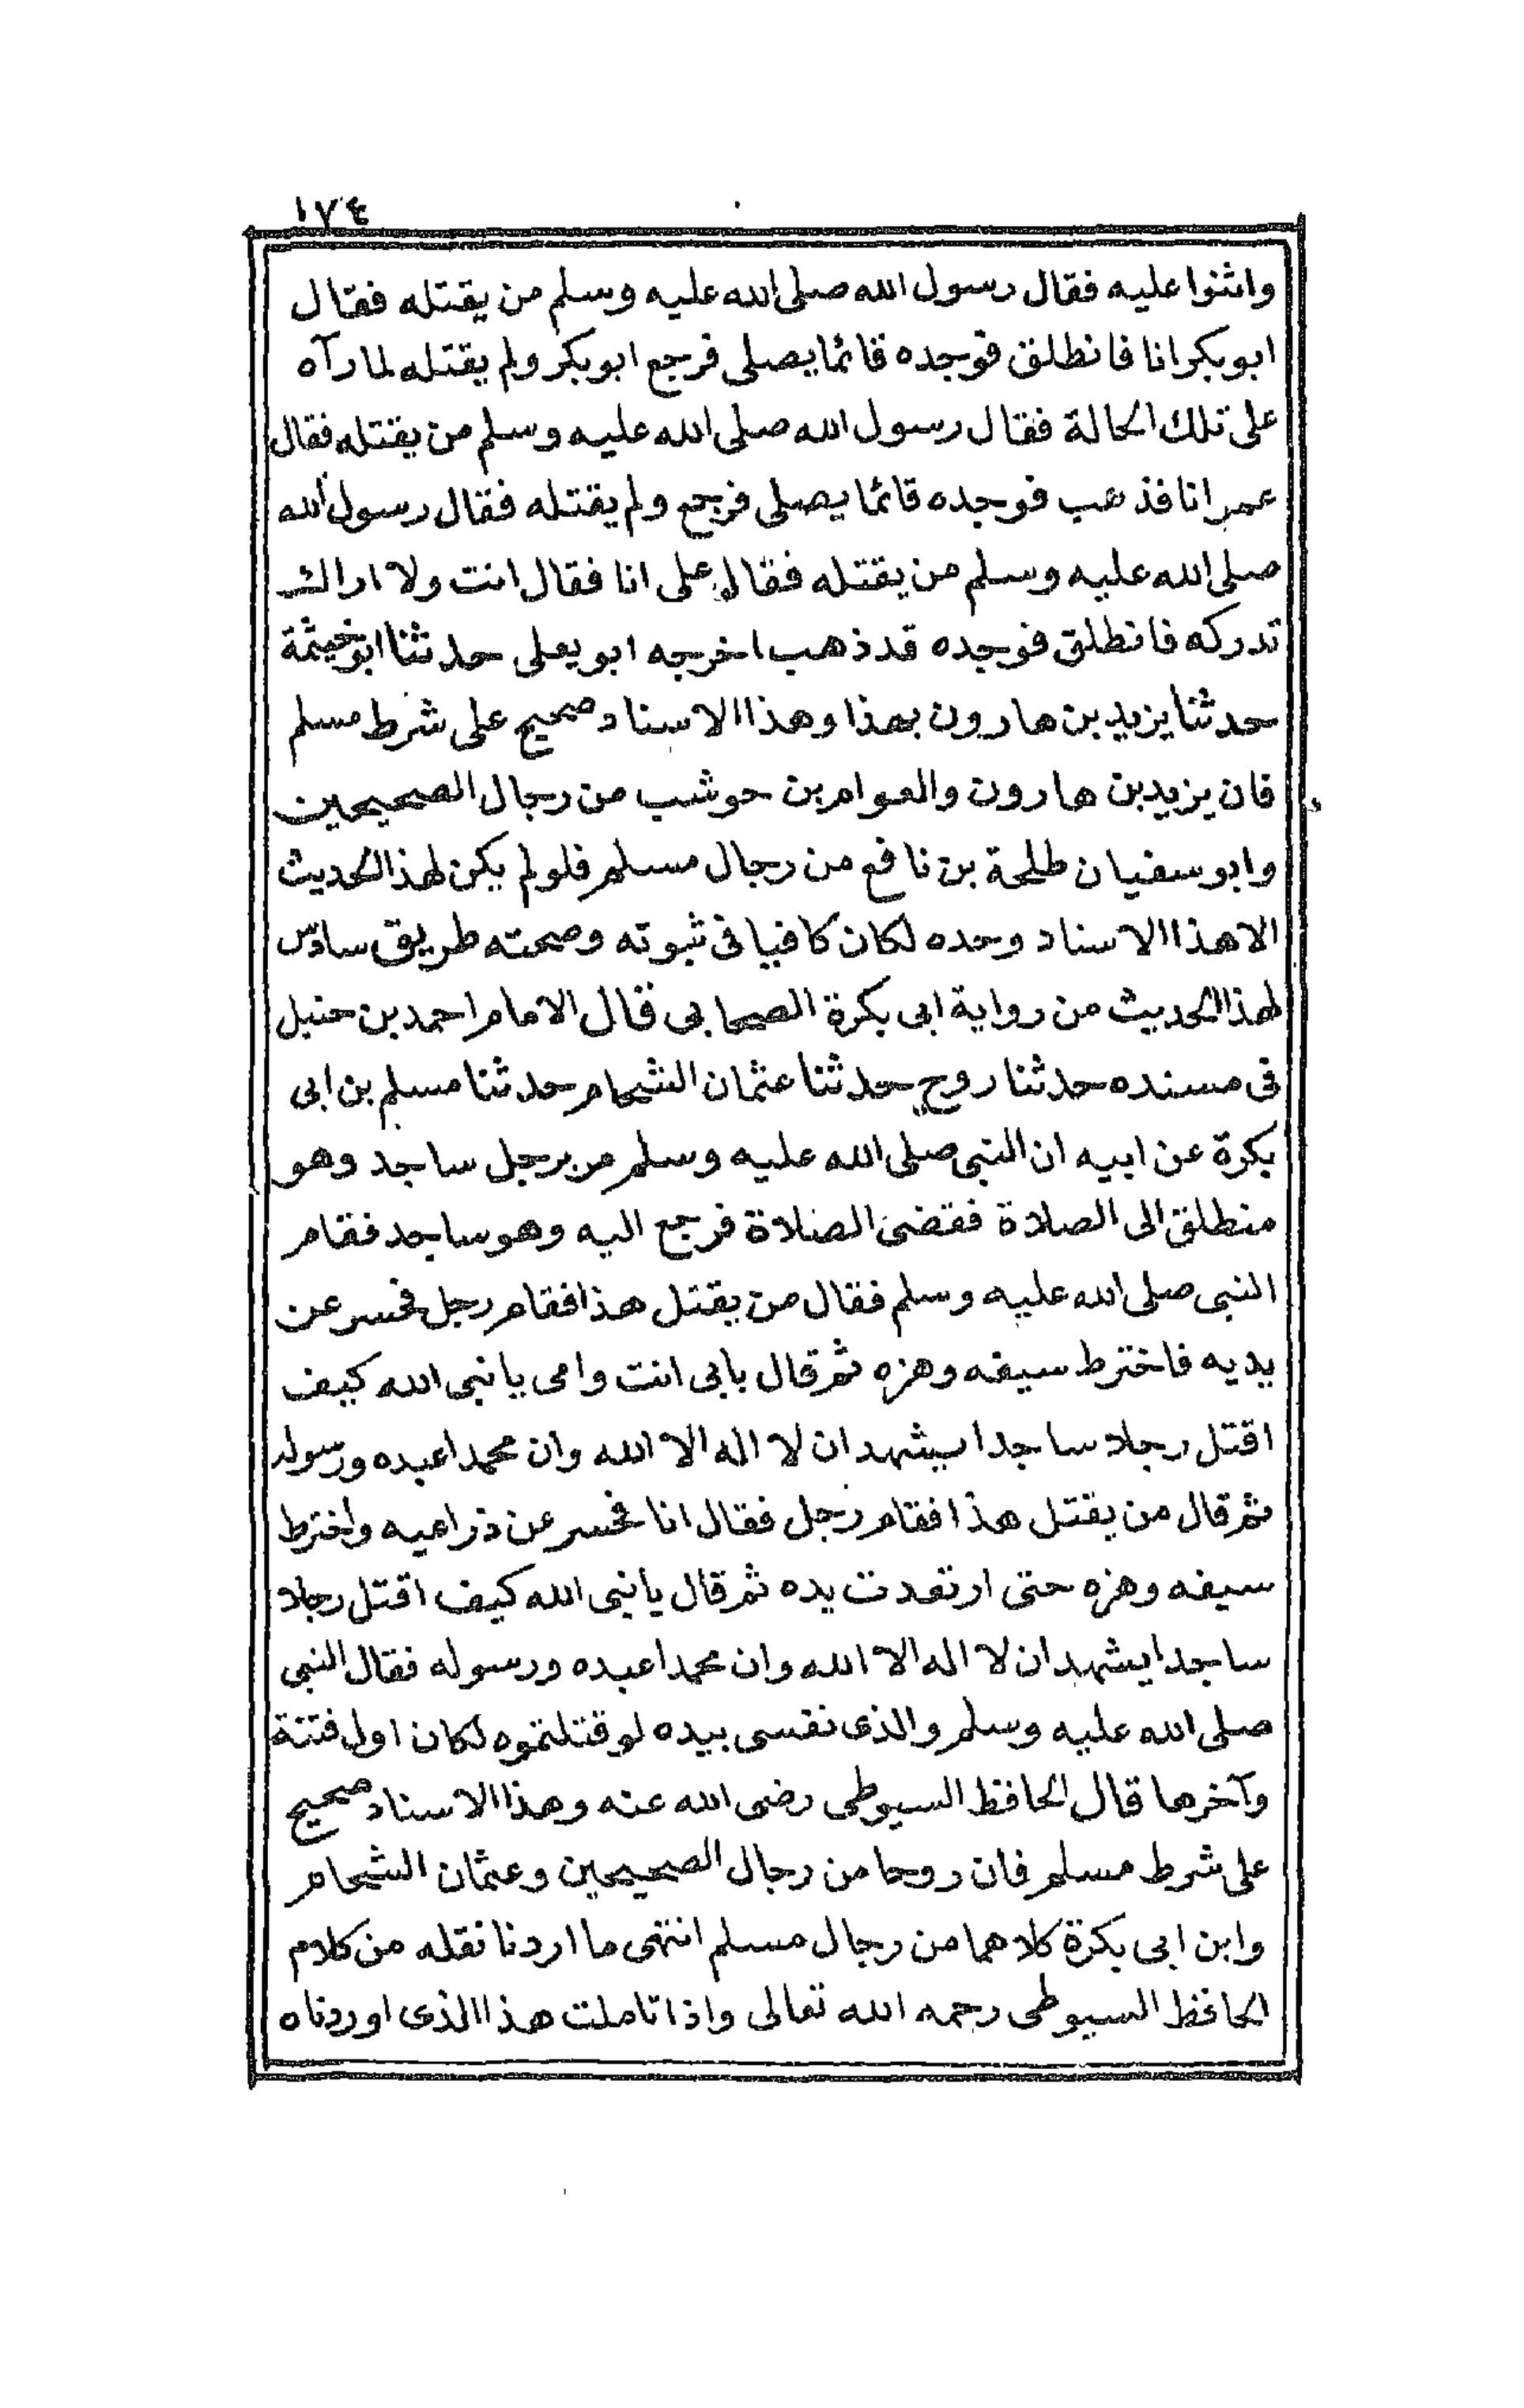 ١٧٤
واثنوا عليه فقال رسول الله صلى الله عليه وسلم من يقتله فقال
ابو بكر انا فانطلق فوجده قائما يصلى فرجع ابو بكر ولم يقتله لما رآه
على تلك الحالة فقال رسول الله صلى الله عليه وسلم من يقتله فقال
عمر انا فذهب فوجده قائما يصلى فرجع ولم يقتله فقال رسول الله
صلى الله عليه وسلم من يقتله فقال على انا فقال انت ولا اراك
تدركه فانطلق فوجده قد ذهب اخرجه ابو يعلى حدثنا ابو خيثمة
حدثنا يزيد بن هارون بهذا وهذا الاسناد صحيح على شرط مسلم
فان يزيد بن هارون والعوام بن حوشب من رجال الصحيحين
وابو سفيان طلحة بن نافع من رجال مسلم فلو لم يكن لهذا الحديث
الا هذا الاسناد وحده لكان كافيا فى ثبوته وصحته طريق سادس
لهذا الحديث من رواية ابى بكرة الصحابى قال الامام احمد بن حنبل
فى مسنده حدثنا روح حدثنا عثمان الشحام حدثنا مسلم بن ابى
بكرة عن ابيه ان النبى صلى الله عليه وسلم مر برجل ساجد وهو
منطلق الى الصلاة فقضى الصلاة فرجع اليه وهو ساجد فقام
النبى صلى الله عليه وسلم فقال من يقتل هذا فقام رجل فحسر عن
يديه فاخترط سيفه وهزه ثم قال بابى انت وامى يا نبى الله كيف
اقتل رجلا ساجدا يشهد ان لا اله الا الله وان محمدا عبده ورسوله
ثم قال من يقتل هذا فقام رجل فقال انا فحسر عن ذراعيه واخترط
سيفه وهزه حتى ارتعدت يده ثم قال يا نبى الله كيف اقتل رجلا
ساجدا يشهد ان لا اله الا الله وان محمدا عبده ورسوله فقال النبى
صلى الله عليه وسلم والذى نفسى بيده لو قتلتموه لكان اول فتنة
وآخرها قال الحافظ السيوطى رضى الله عنه وهذا الاسناد صحيح
على شرط مسلم فان روحا من رجال الصحيحين وعثمان الشحام
وابن ابى بكرة كلاهما من رجال مسلم انتهى ما اردنا نقله من كلام
الحافظ السيوطى رحمه الله تعالى واذا تاملت هذا الذى اوردناه